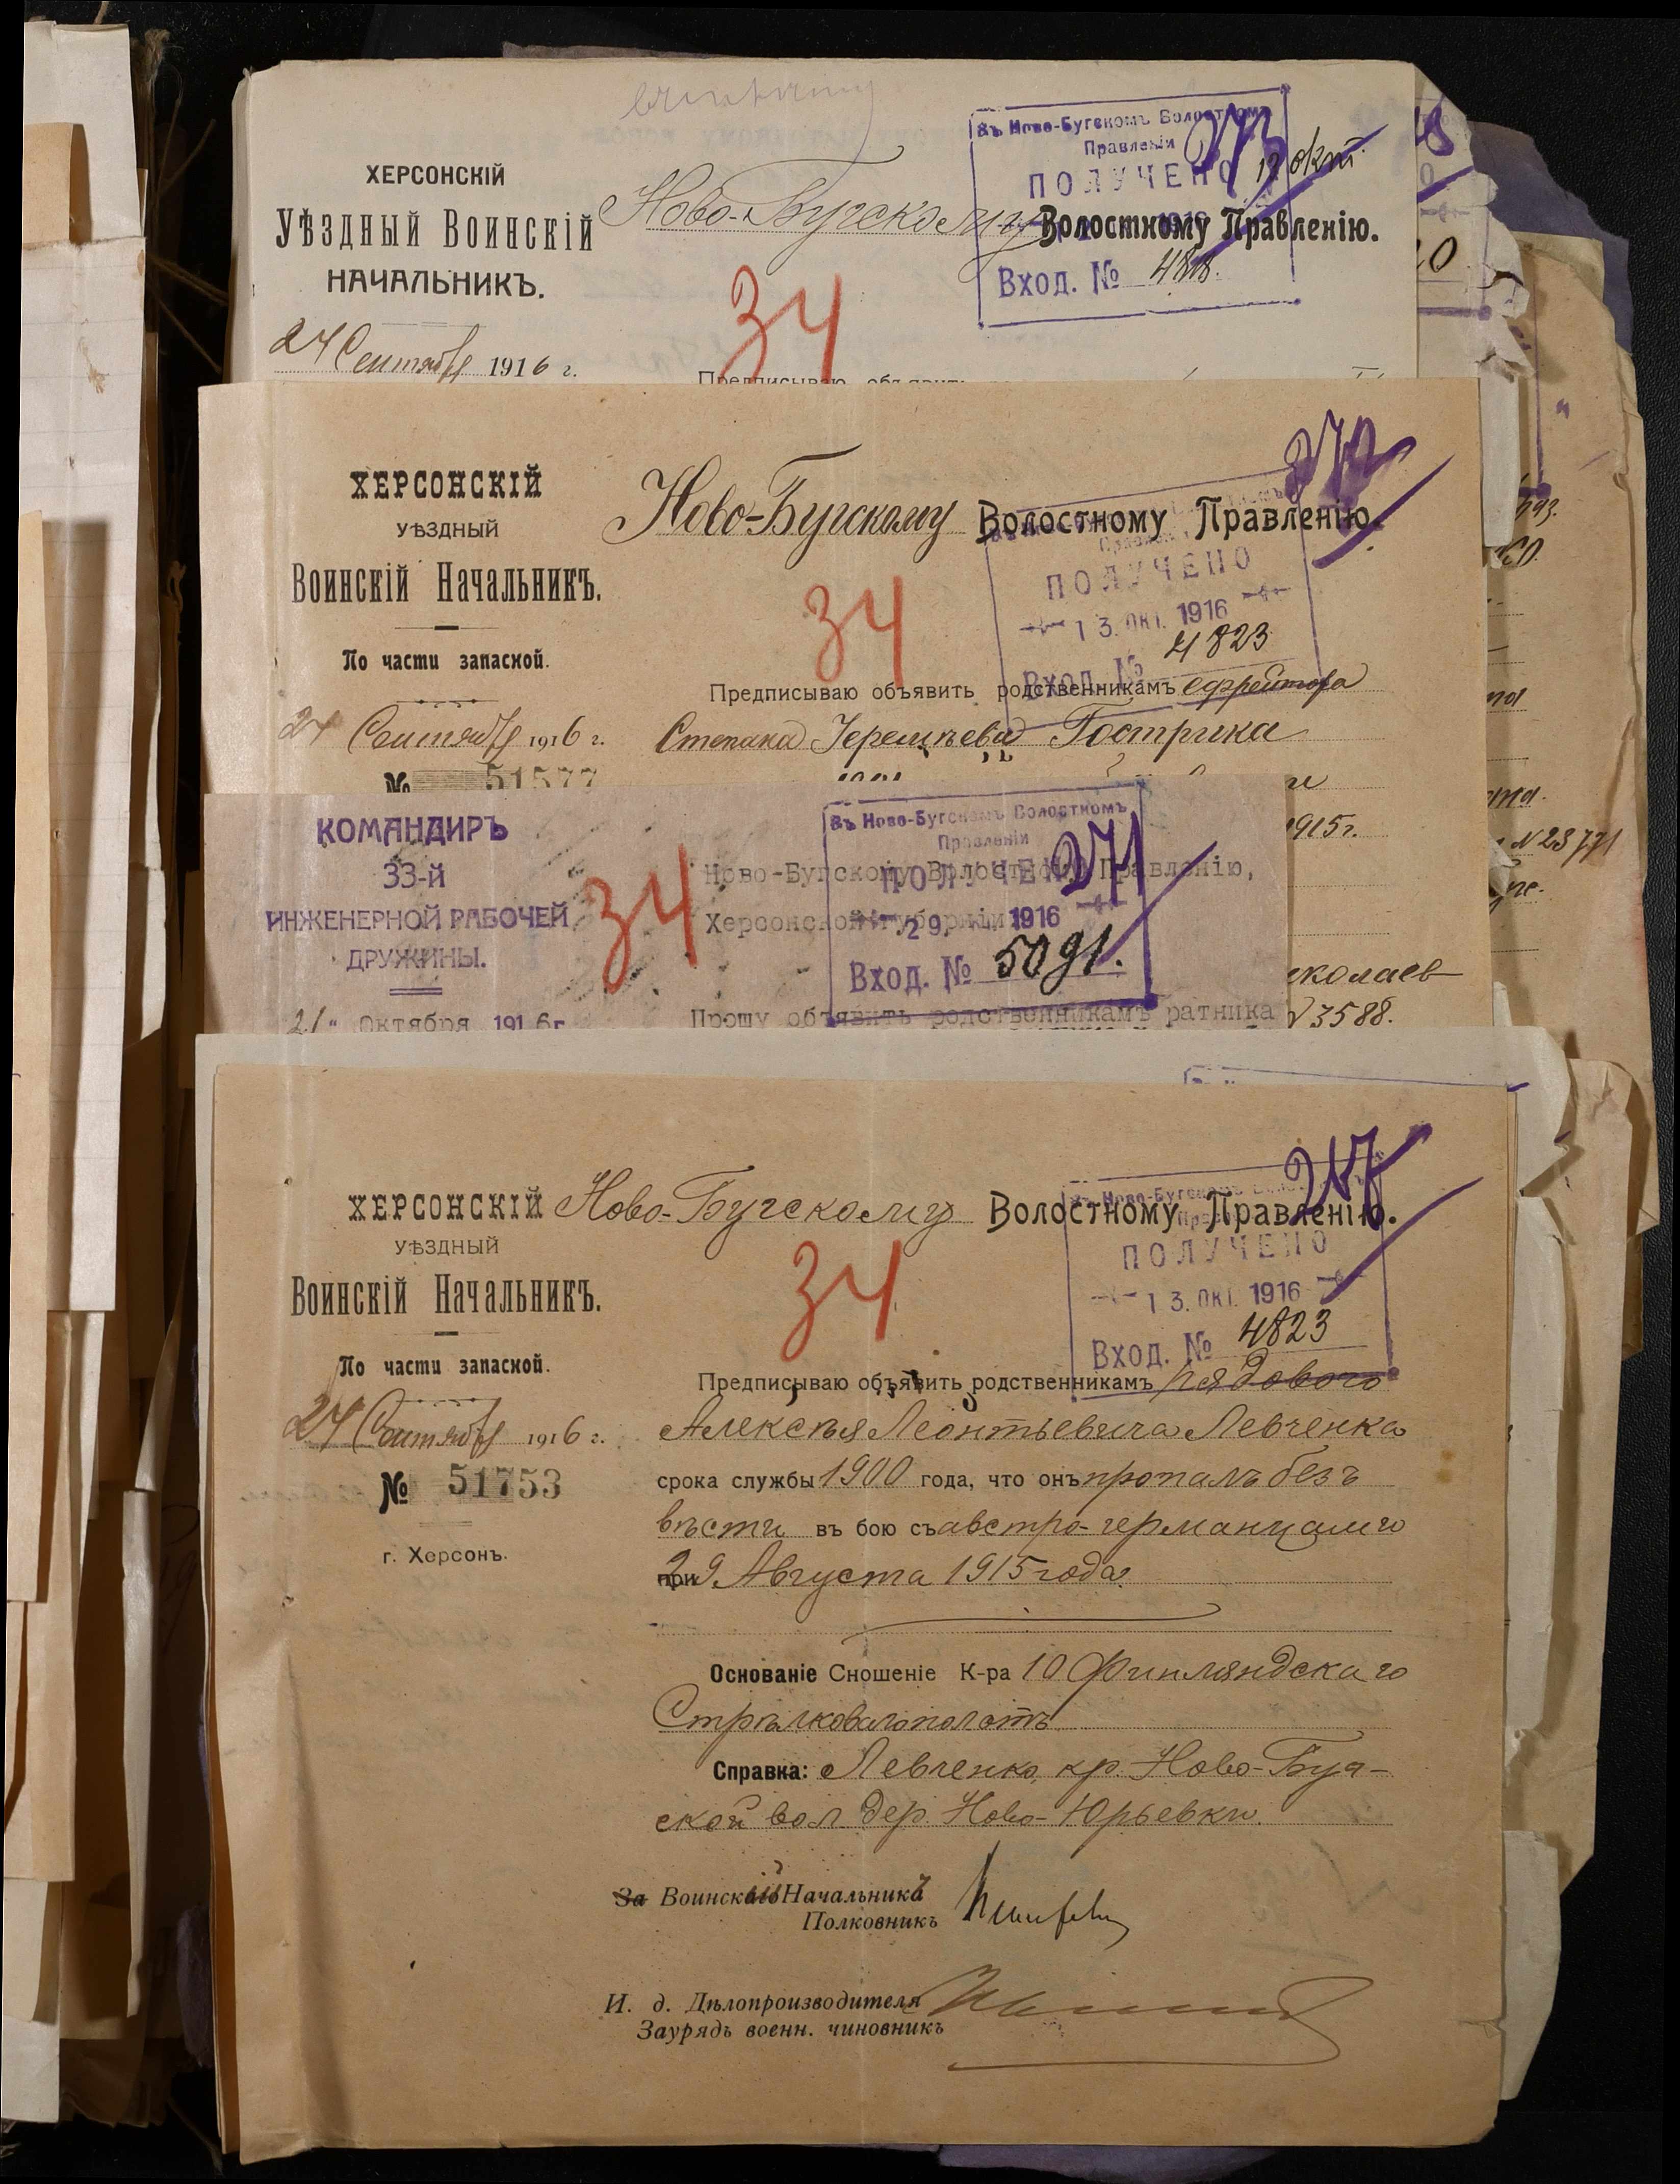 ХЕРСОНСКІЙ
УѢЗДНЫЙ ВОИНСКІЙ
НАЧАЛЬНИКЪ.
24 Сентября 1916 г.
Ново-Бугскому Волостному Правленію.
Въ Ново-Бугскомъ Волостномъ
Правленіи
ПОЛУЧЕНО
12 окт.
1916
Вход. №
273
34
Предписываю объявить
ХЕРСОНСКІЙ
УѢЗДНЫЙ
ВОИНСКІЙ НАЧАЛЬНИКЪ.
По части запасной.
24 Сентября 1916 г.
№ 51577
Ново-Бугскому Волостному Правленію.
272
34
ПОЛУЧЕНО
13. ОКТ. 1916
Вход. № 4823
Предписываю объявить родственникамъ ефрейтора
Степана Иеремѣева Гострика
1915г.
КОМАНДИРЪ
33-й
ИНЖЕНЕРНОЙ РАБОЧЕЙ
ДРУЖИНЫ.
21" Октября 1916г
34
Ново-Бугскому Волостному Правленію,
Херсонской губерніи
Въ Ново-Бугскомъ Волостномъ
Правленіи
ПОЛУЧЕНО
271
29. 1916
Вход. № 5091.
Прошу объявить родственникамъ ратника
иколаев
№ 3588.
№ 23771
ХЕРСОНСКІЙ
УѢЗДНЫЙ
ВОИНСКІЙ НАЧАЛЬНИКЪ.
По части запасной.
24 Сентября 1916 г.
№ 51753
г. Херсонъ.
Ново-Бугскому Волостному Правленію.
34
Въ Ново-Бугскомъ
ПОЛУЧЕНО
13. ОКТ. 1916
Вход. № 4823
Предписываю объявить родственникамъ рядового
Алексѣя Леонтьевича Левченка
срока службы 1900 года, что онъ пропалъ безъ
вѣсти въ бою съ австро-германцами
при 29 Августа 1915 года.
Основаніе Сношеніе К-ра 10 Финляндскаго
Стрѣлковаго полка
Справка: Левченко, кр. Ново-Буг-
ской вол. дер. Ново-Юрьевки.
За Воинскій Начальникъ
Полковникъ
И. д. Дѣлопроизводителя
Заурядъ военн. чиновникъ